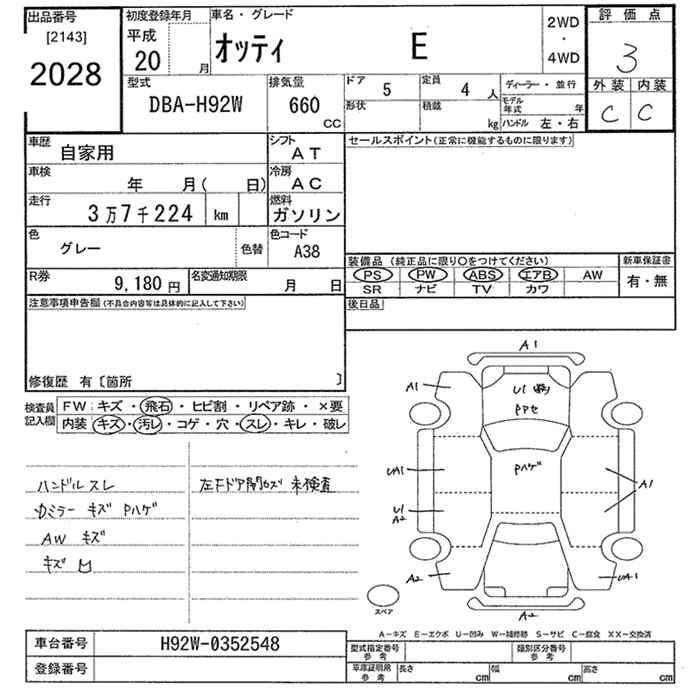 出品番号
[2143]
2028
初度登録年月
平成
20 月
車名・グレード
オッティ E
2WD
・
4WD
評価点
3
外装 内装
C C
型式
DBA-H92W
排気量
660
CC
ドア
5
定員
4 人
形状
積載
kg
ディーラー・並行
モデル年式 年
ハンドル 左・右
車歴
自家用
シフト
AT
車検
年 月( 日)
冷房
AC
走行
3万7千224 km
燃料
ガソリン
色
グレー
色替
色コード
A38
R券
9,180 円
名変通知期限
月 日
セールスポイント(正常に機能するものに限ります)
装備品 (純正品に限り○をつけてください)
PS PW ABS エアB AW
SR ナビ TV カワ
新車保証書
有・無
後日品
注意事項申告欄(不具合内容等は具体的に記入して下さい)
修復歴 有〔箇所 〕
検査員記入欄
FW:キズ・飛石・ヒビ割・リペア跡・×要
内装・キズ・汚レ・コゲ・穴・スレ・キレ・破レ
ハンドルスレ
カミラー キズ Pハゲ
AW キズ
キズ
左Fドア開カズ 未検査
A1
A1
U1
PPセ
Pハゲ
UA1
U1
A2
A1
A2
UA1
A2
スペア
A-キズ E-エクボ U-凹み W-補修跡 S-サビ C-腐食 XX-交換済
車台番号
H92W-0352548
登録番号
型式指定番号
参考
類別区分番号
参考
車庫証明用
参考
長さ cm
幅 cm
高さ cm